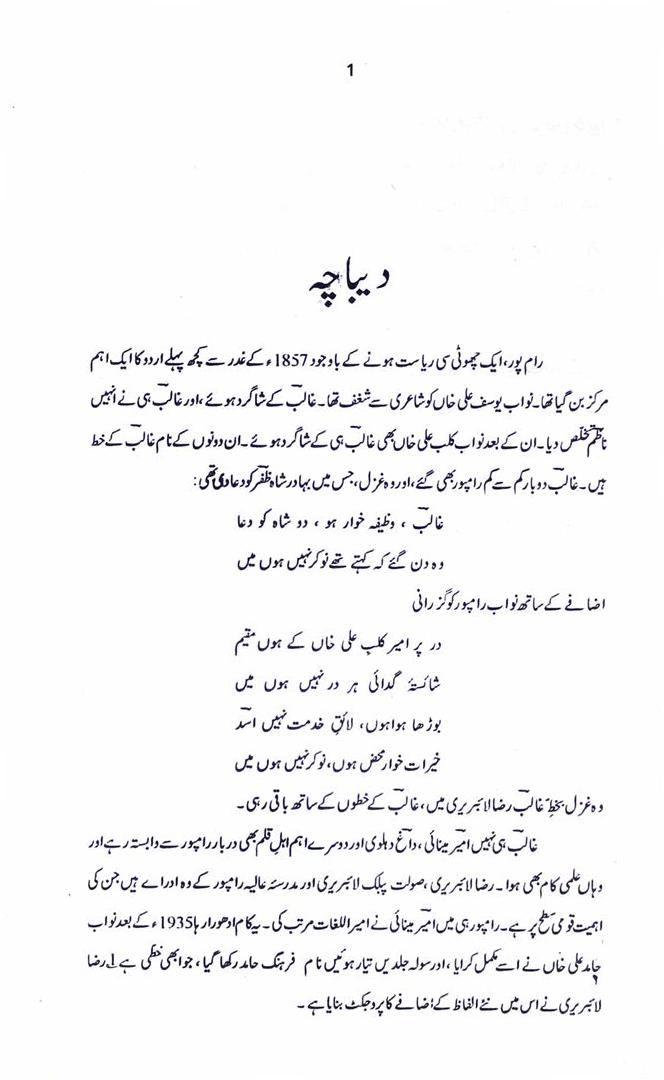 1
دیباچہ
رام پور، ایک چھوٹی سی ریاست ہونے کے باوجود 1857ء کے غدر سے کچھ پہلے اردو کا ایک اہم
مرکز بن گیا تھا۔ نواب یوسف علی خاں کو شاعری سے شغف تھا۔ غالبؔ کے شاگرد ہوئے، اور غالبؔ ہی نے انہیں
ناظمؔ تخلص دیا۔ ان کے بعد نواب کلب علی خاں بھی غالبؔ ہی کے شاگرد ہوئے۔ ان دونوں کے نام غالبؔ کے خط
ہیں۔ غالبؔ دو بار کم سے کم رامپور بھی گئے، اور وہ غزل، جس میں بہادر شاہ ظفرؔ کو دعا دی تھی:
غالبؔ ، وظیفہ خوار ہو ، دو شاہ کو دعا
وہ دن گئے کہ کہتے تھے نوکر نہیں ہوں میں
اضافے کے ساتھ نواب رامپور کو گزرانی
در پر امیر کلبِ علی خاں کے ہوں مقیم
شائستۂ گدائی ہر در نہیں ہوں میں
بوڑھا ہوا ہوں، لائقِ خدمت نہیں اسدؔ
خیرات خوار محض ہوں، نوکر نہیں ہوں میں
وہ غزل بخطِ غالبؔ رضا لائبریری میں، غالبؔ کے خطوں کے ساتھ باقی رہی۔
غالبؔ ہی نہیں امیرؔ مینائی، داغؔ دہلوی اور دوسرے اہم اہلِ قلم بھی دربار رامپور سے وابستہ رہے اور
وہاں علمی کام بھی ہوا۔ رضا لائبریری، صولت پبلک لائبریری اور مدرسہ عالیہ رامپور کے وہ ادراے ہیں جن کی
اہمیت قومی سطح پر ہے۔ رامپور ہی میں امیرؔ مینائی نے امیر اللغات مرتب کی۔ یہ کام ادھورا رہا 1935ء کے بعد نواب
حامد علی خاں نے اسے مکمل کرایا، اور سولہ جلدیں تیار ہوئیں نام فرہنگ حامد رکھا گیا، جو ابھی خطی ہے۔ رضا
لائبریری نے اس میں نئے الفاظ کے اضافے کا پروجکٹ بنایا ہے۔